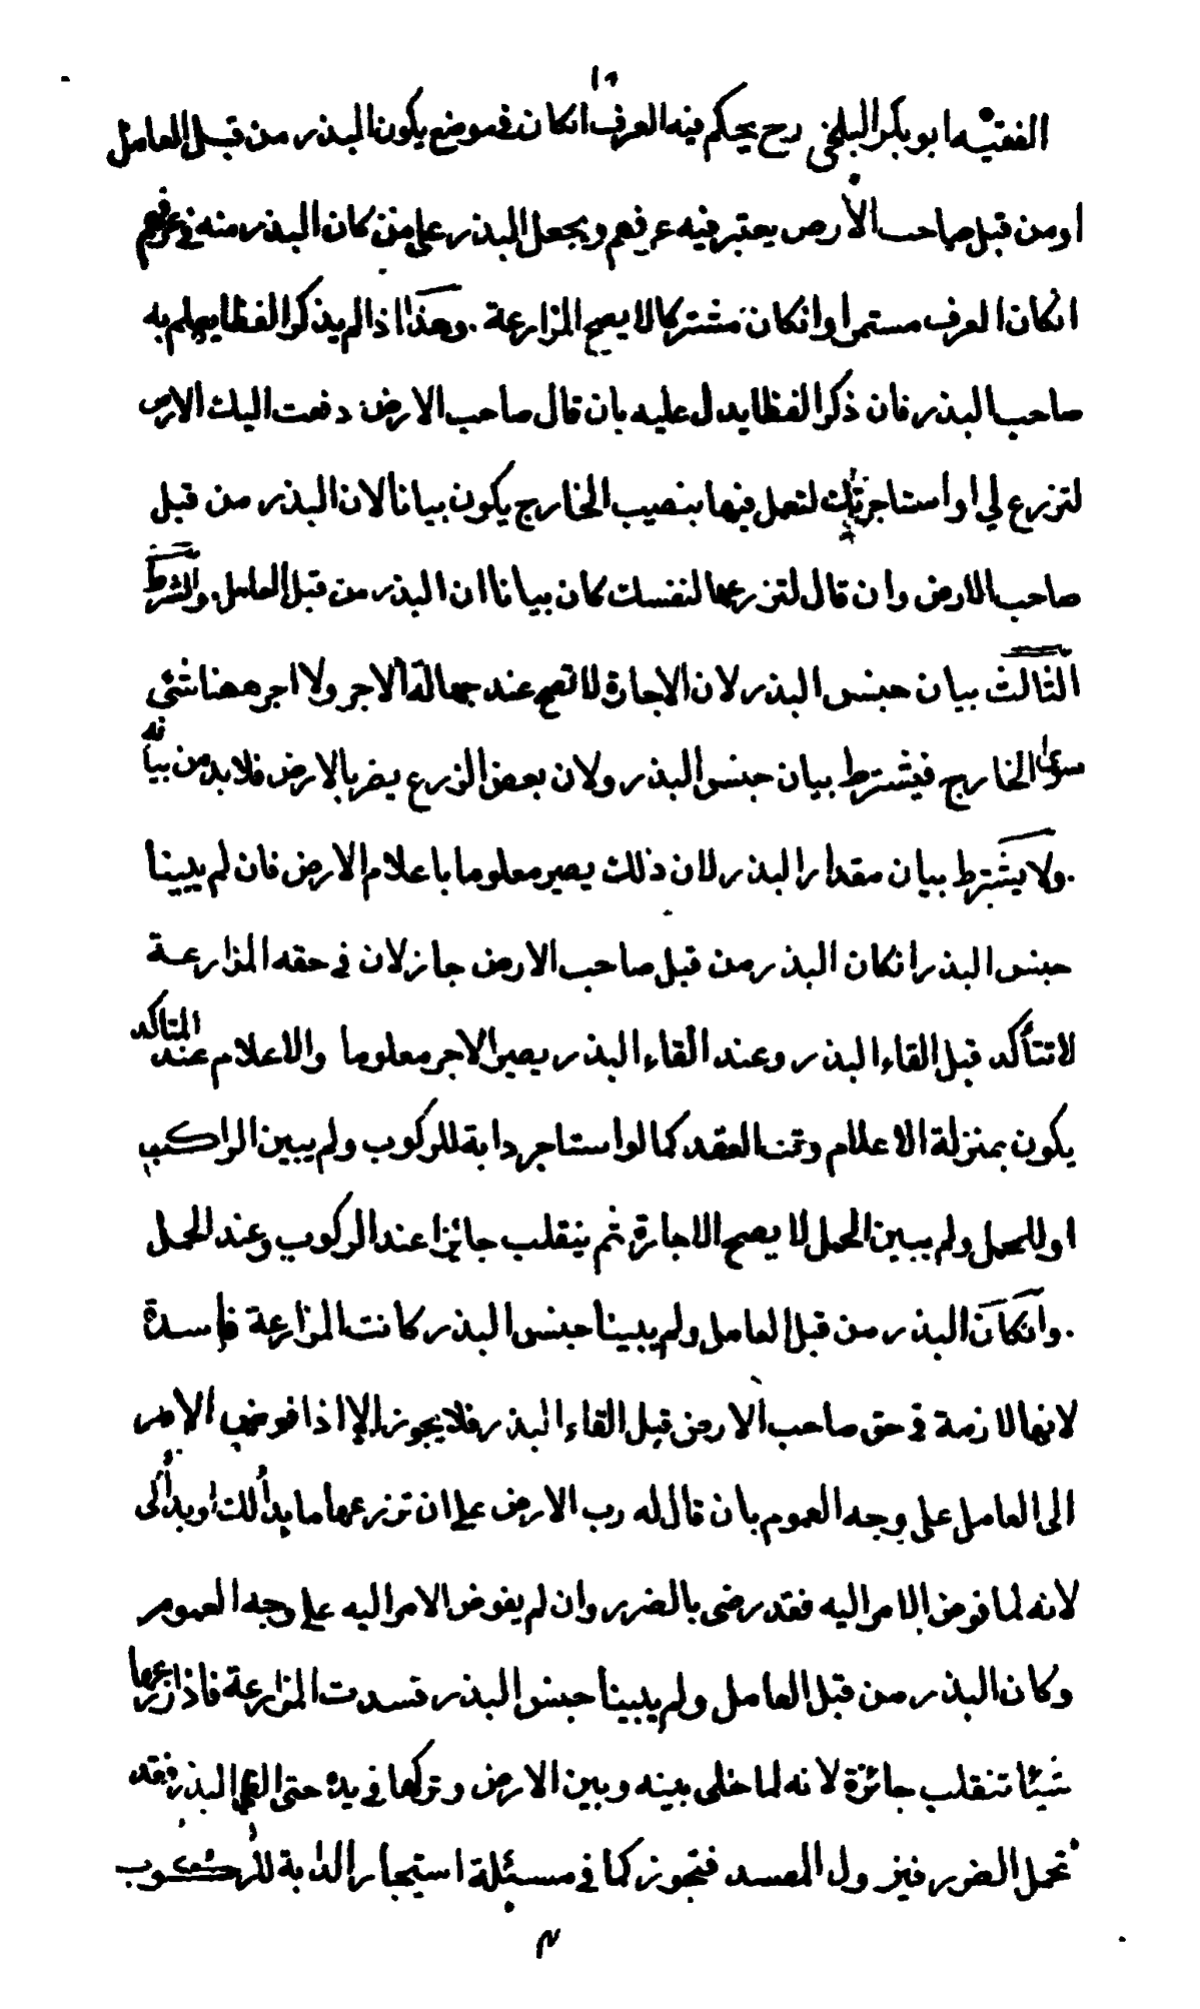 الفقيه ابو بكر البلخي رح يحكم فيه العرف انكان في موضع يكون البذر من قبل العامل
او من قبل صاحب الأرض يعتبر فيه عرفهم ويجعل البذر على من كان البذر منه في عرفهم
انكان العرف مستمرا وانكان مشتركا لا يصح المزارعة . وهذا اذا لم يذكرا لفظا يعلم به
صاحب البذر فان ذكرا لفظا يدل عليه بان قال صاحب الارض دفعت اليك الارض
لتزرع لي او استاجرتك لتعمل فيها بنصيب الخارج يكون بيانا لان البذر من قبل
صاحب الارض وان قال لتزرعها لنفسك كان بيانا ان البذر من قبل العامل . والشرط
الثالث بيان جنس البذر لان الاجارة لا تصح عند جهالة الاجر ولا اجر ههنا شئى
سوى الخارج فيشترط بيان جنس البذر ولان بعض الزرع يضر بالارض فلا بد من بيانه
. ولا يشترط بيان مقدار البذر لان ذلك يصير معلوما باعلام الارض فان لم يبينا
جنس البذر انكان البذر من قبل صاحب الارض جاز لان في حقه المزارعة
لا تتأكد قبل القاء البذر وعند القاء البذر يصير الاجر معلوما والاعلام عند المتاكد
يكون بمنزلة الاعلام وقت العقد كما لو استاجر دابة للركوب ولم يبين الراكب
او للحمل ولم يبين الحمل لا يصح الاجارة ثم ينقلب جائزا عند الركوب وعند الحمل
. وانكان البذر من قبل العامل ولم يبينا جنس البذر كانت المزارعة فاسدة
لانها لازمة في حق صاحب الارض قبل القاء البذر فلا يجوز الا اذا فوض الامر
الى العامل على وجه العموم بان قال له رب الارض على ان تزرعها ما بدألك او بدألى
لانه لما فوض الامر اليه فقد رضى بالضرر وان لم يفوض الامر اليه على وجه العموم
وكان البذر من قبل العامل ولم يبينا جنس البذر فسدت المزارعة فاذا زرعها
شيئا تنقلب جائزة لانه لما خلى بينه وبين الارض وتركها في يده حتى القى البذر فقد
تحمل الضرر فيزول المفسد فتجوز كما في مسئلة استيجار الدابة للركوب